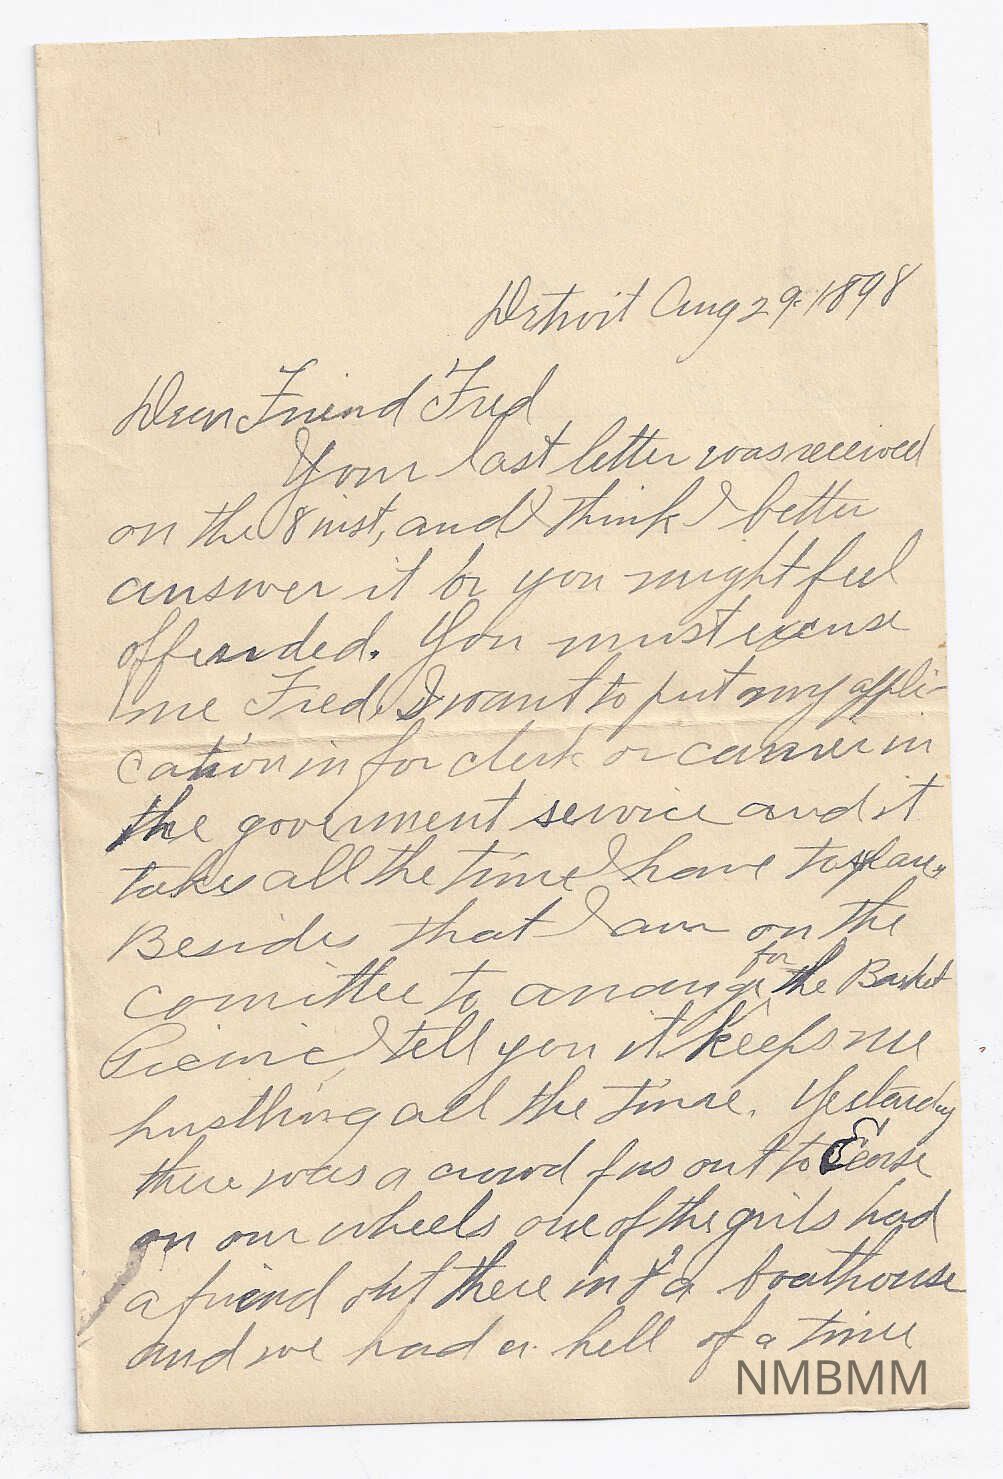 Detroit Aug 29. 1898
Dear Friend Fred
Your last letter was received
on the 8 inst, and I think I better
answer it or you might feel
offended. You must excuse
me Fred, I want to put my appli-
cation in for clerk or carrier in
the goverment service and it
takes all the time I have to spare.
Besides that I am on the
comittee to arrange for the Basket
Picnic, I tell you it keeps me
hustling all the time. Yesterday
there was a crowd of us out to Ecorse
on our wheels one of the girls had
a friend out there in a boathouse
and we had a hell of a time
NMBMM